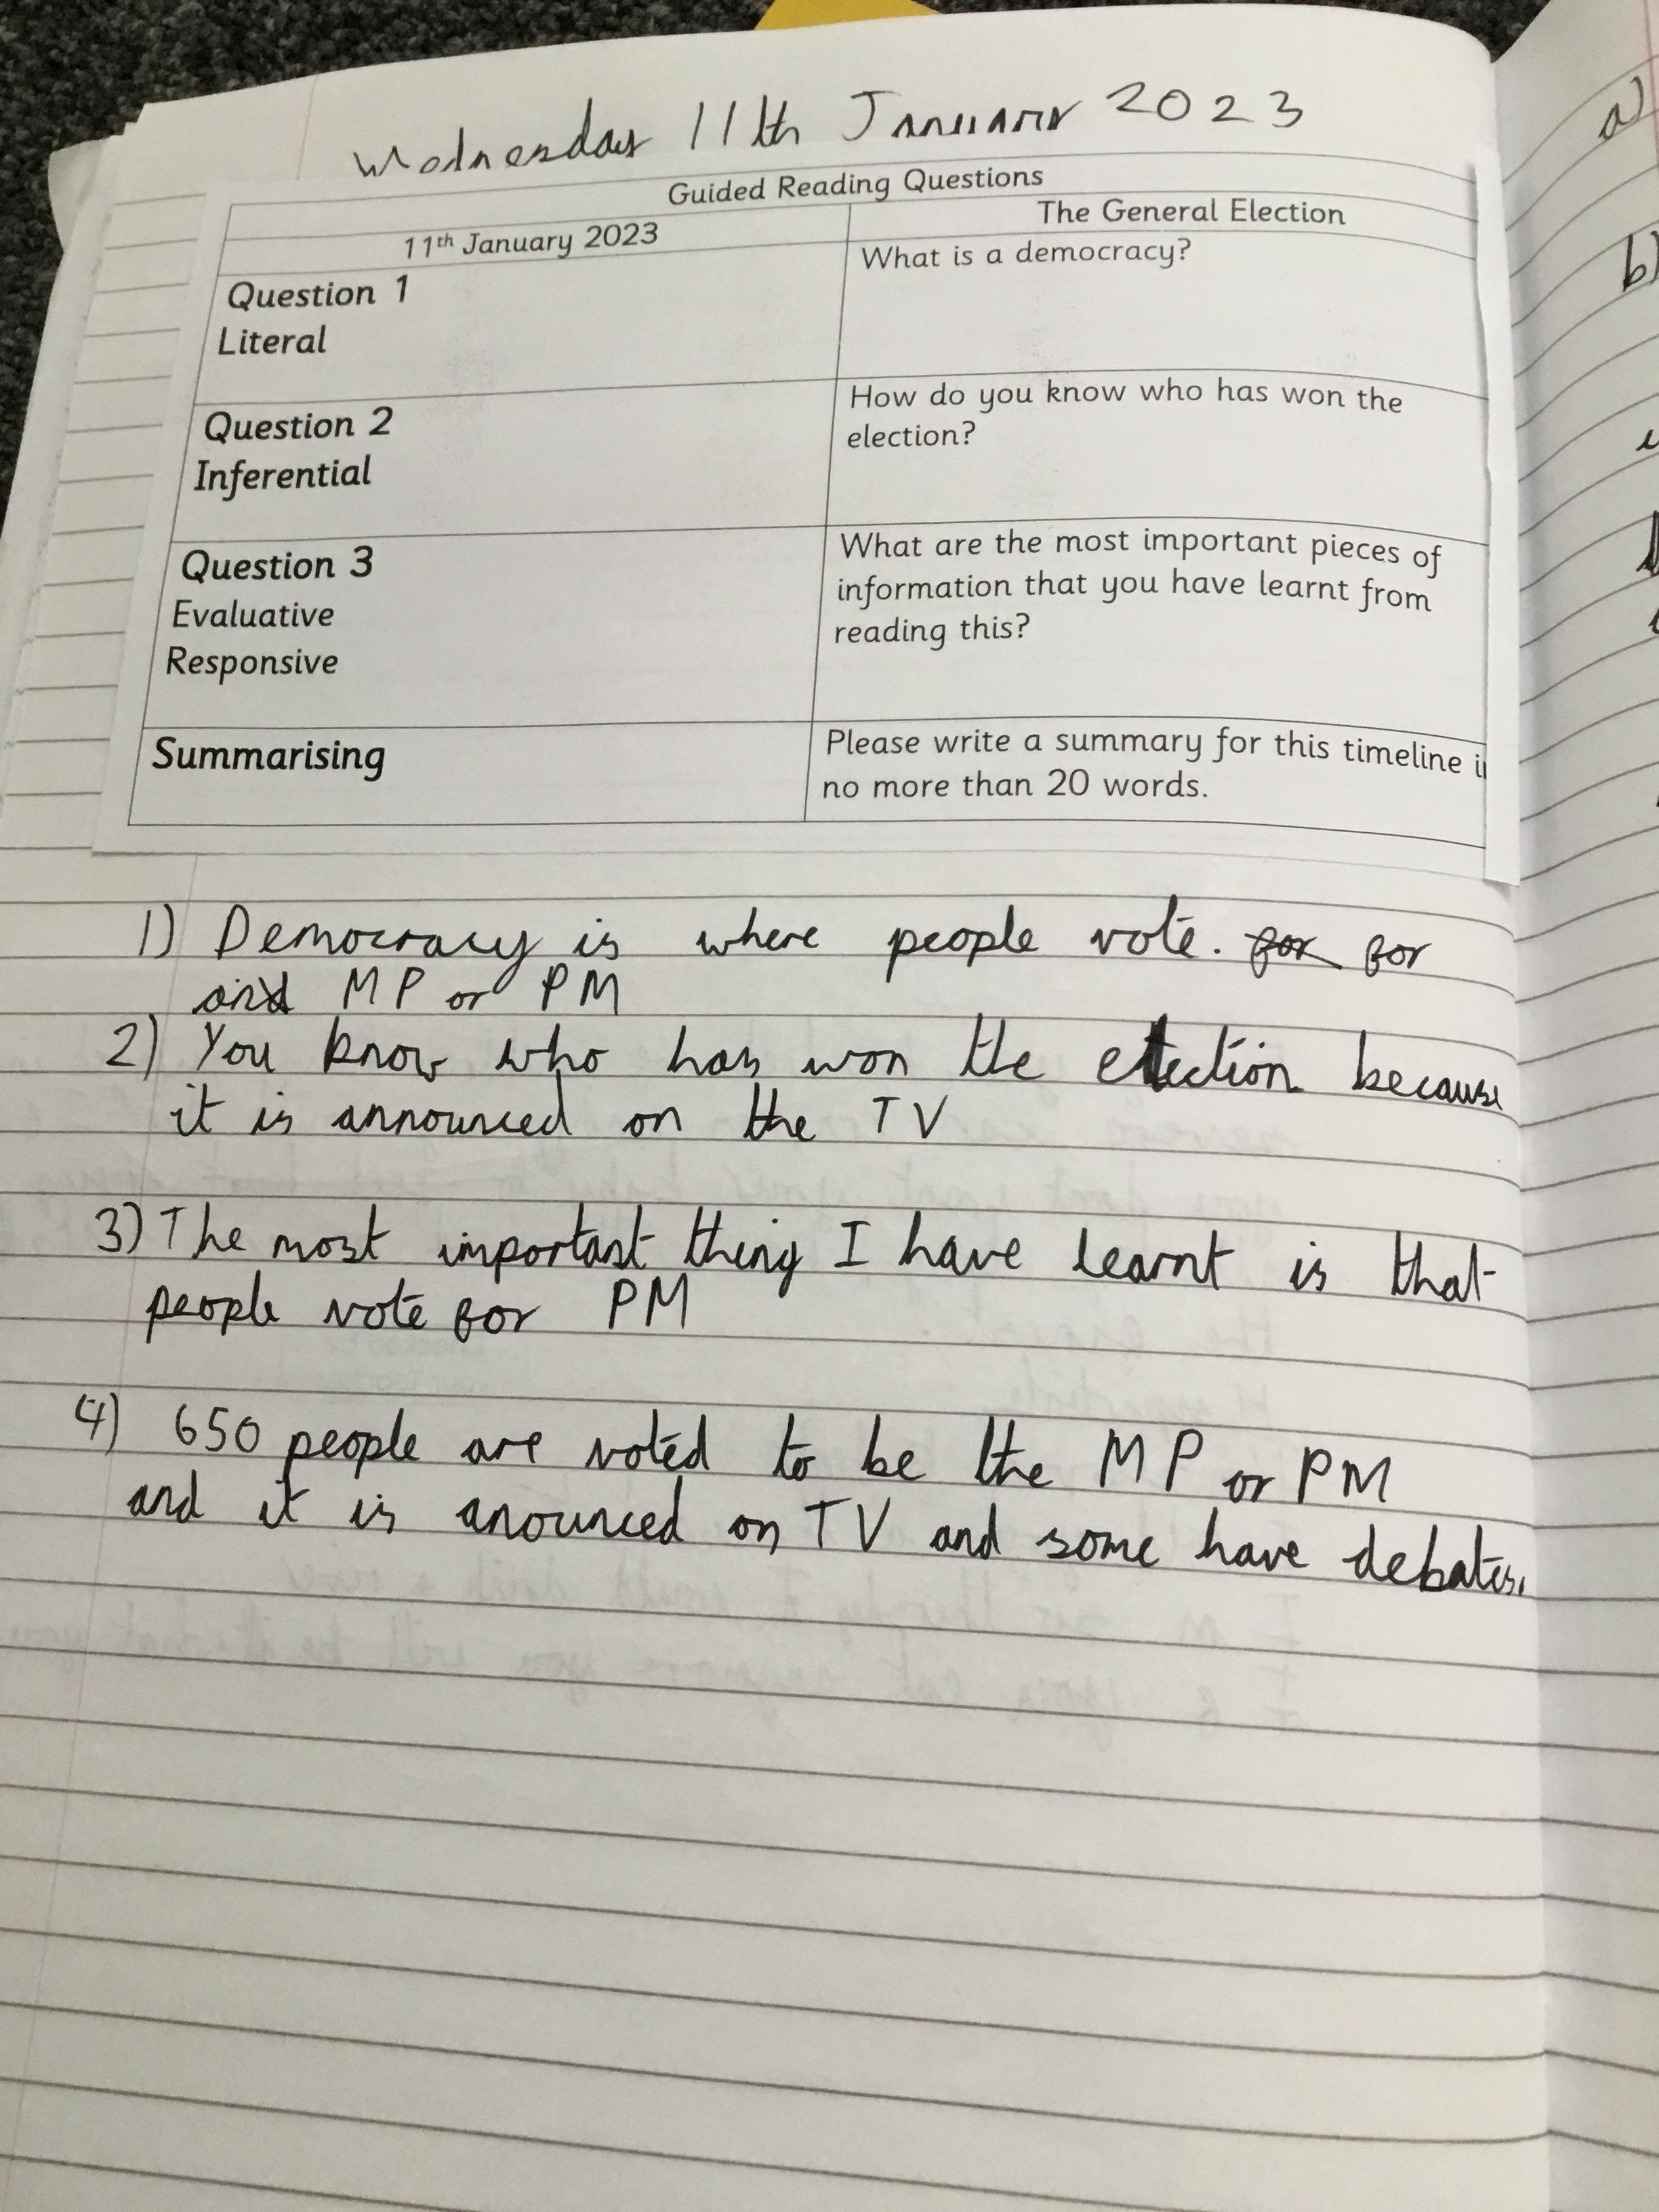 Wednesday 11th January 2023
Guided Reading Questions
11th January 2023
The General Election
Question 1
Literal
What is a democracy?
Question 2
Inferential
How do you know who has won the
election?
Question 3
Evaluative
Responsive
What are the most important pieces of
information that you have learnt from
reading this?
Summarising
Please write a summary for this timeline i
no more than 20 words.
1) Democracy is where people vote. for for
MP or PM
2) You know who has won the election because
it is announced on the TV
3) The most important thing I have learnt is that
people vote for PM
4) 650 people are voted to be the MP or PM
and it is anounced on TV and some have debates.
a)
b)